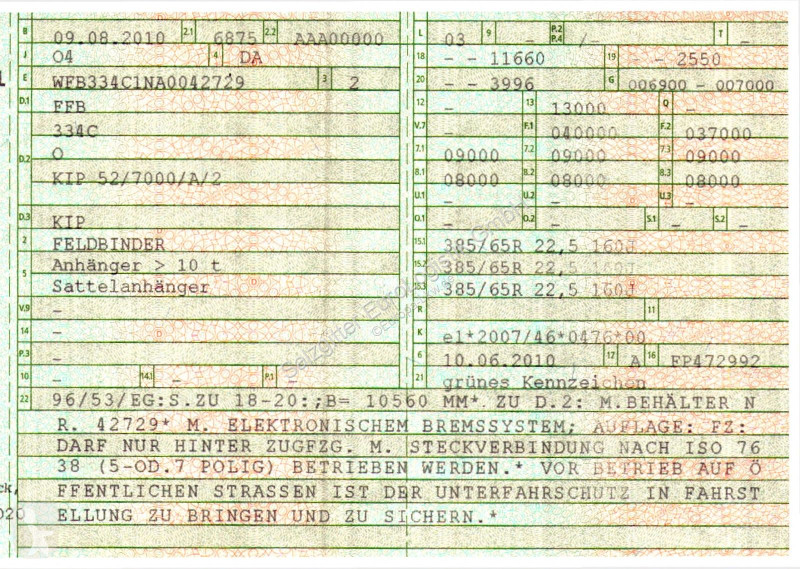 B 09.08.2010 2.1 6875 2.2 AAA00000
J 04 4 DA
E WFB334C1NA0042729 3 2
D.1 FFB
334C
D.2 0
KIP 52/7000/A/2
D.3 KIP
2 FELDBINDER
5 Anhänger > 10 t
Sattelanhänger
V.9 -
14 -
P.3 -
10 - 14.1 - P.1 -
L 03 9 - P.2 P.4 -/- T -
18 - - 11660 19 - - 2550
20 - - 3996 G 006900 - 007000
12 - 13 13000 Q -
V.7 - F.1 040000 F.2 037000
7.1 09000 7.2 09000 7.3 09000
8.1 08000 8.2 08000 8.3 08000
U.1 - U.2 - U.3 -
O.1 - O.2 - S.1 - S.2 -
15.1 385/65R 22,5 160J
15.2 385/65R 22,5 160J
15.3 385/65R 22,5 160J
R - 11 -
K e1*2007/46*0476*00
6 10.06.2010 17 A 16 FP472992
21 grünes Kennzeichen
22 96/53/EG:S.ZU 18-20:;B= 10560 MM* ZU D.2: M.BEHÄLTER N
R. 42729* M. ELEKTRONISCHEM BREMSSYSTEM; AUFLAGE: FZ:
DARF NUR HINTER ZUGFZG. M. STECKVERBINDUNG NACH ISO 76
38 (5-OD.7 POLIG) BETRIEBEN WERDEN.* VOR BETRIEB AUF Ö
FFENTLICHEN STRASSEN IST DER UNTERFAHRSCHUTZ IN FAHRST
ELLUNG ZU BRINGEN UND ZU SICHERN.*